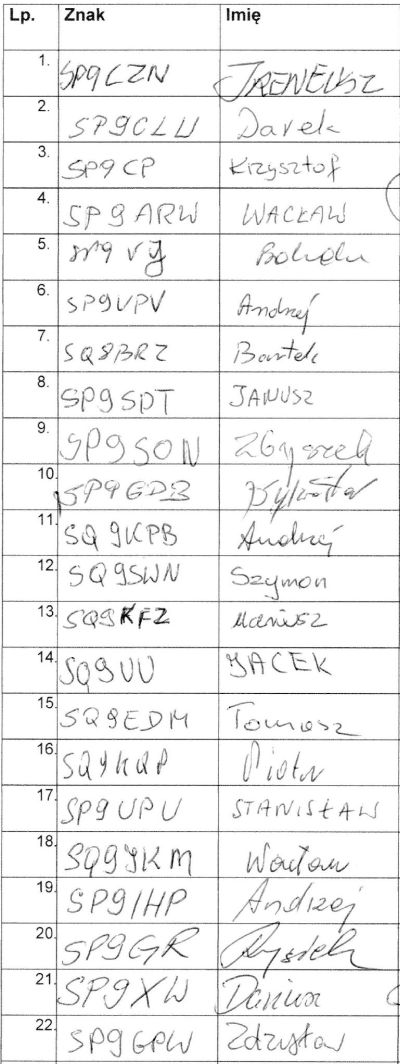 Lp. Znak Imię
1. SP9CZN IRENEUSZ
2. SP9CLU Darek
3. SP9CP Krzysztof
4. SP9ARW WACŁAW
5. SP9VJ Bohdan
6. SP9UPV Andrzej
7. SQ8BRZ Bartek
8. SP9SDT JANUSZ
9. SP9SON Zbyszek
10. SP9GDB
11. SQ9KPB Andrzej
12. SQ9SWN Szymon
13. SQ9KFZ Mariusz
14. SQ9UU JACEK
15. SQ9EDM Tomasz
16. SQ9KQP Piotr
17. SP9UPU STANISŁAW
18. SQ9JKM Wacław
19. SP9IHP Andrzej
20. SP9GR Rysiek
21. SP9XW Dariusz
22. SP9GPW Zdzysław